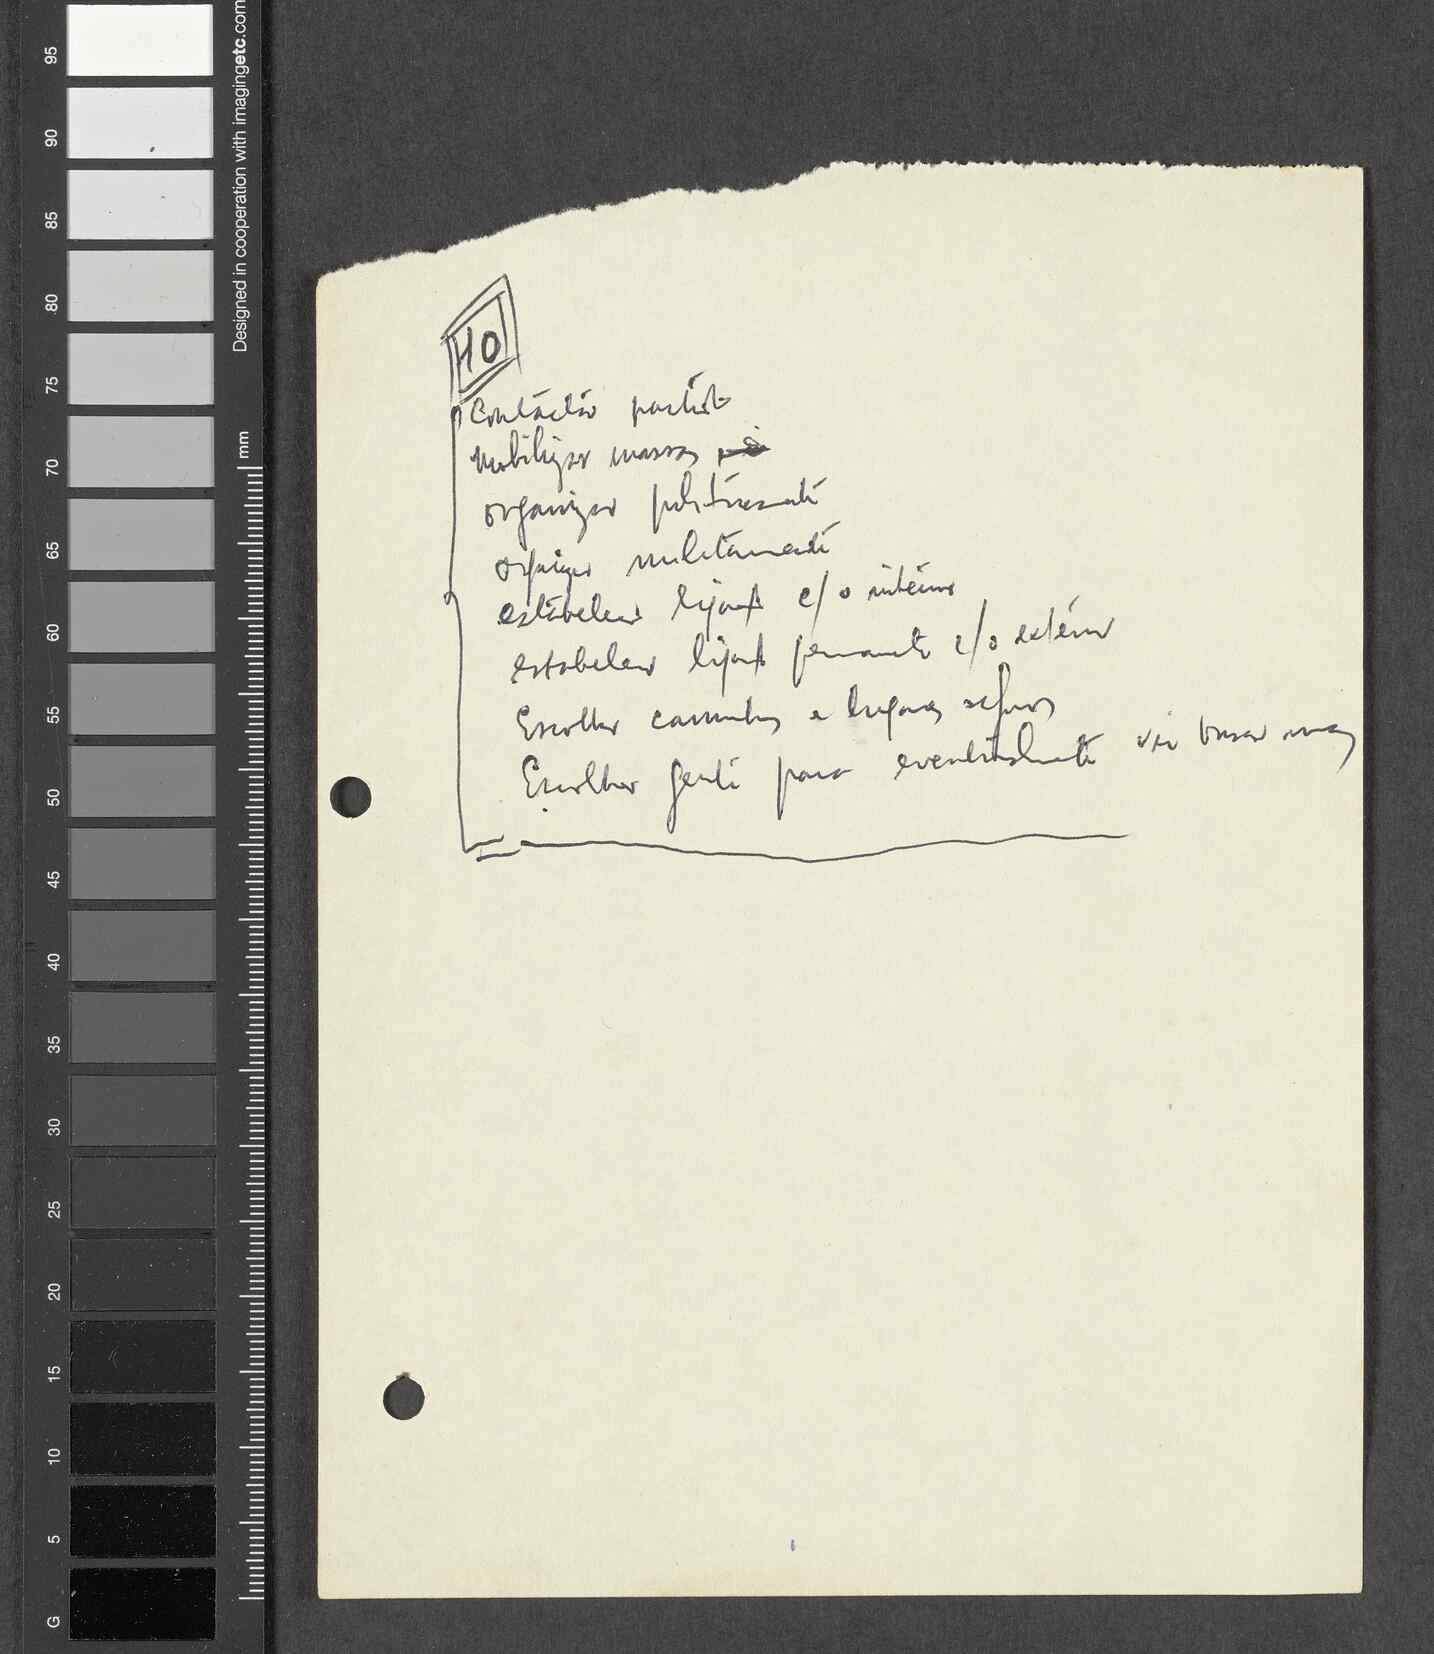 HO
Contactar partido
Mobilizar massas
organizar politicamente
organizar militarmente
estabelecer ligação c/o interior
estabelecer ligação permanente c/o exterior
Escolher caminhos e lugares seguros
Escolher gente para eventualmente vir buscar
95
90
85
80
75
70
65
60
55
50
45
40
35
30
25
20
15
10
5
G
mm
Designed in cooperation with imagingetc.com